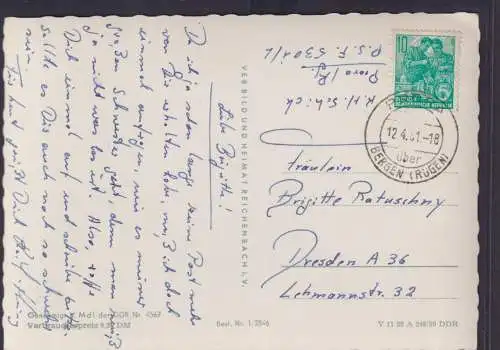 Liebe Brigitte!
Da ich ja schon lange keine Post mehr
von Dir erhalten habe, muß ich doch
einmal anfragen, wie es meiner
großen Schwester geht, denn man weiß
ja nicht was los ist. Also, raffe
Dich einmal auf und schreibe bitte,
sollte es Dir auch noch so schwer
sein.
Für heut grüßt Dich
K.H. Schick
Prora/Rg.
P.S.F. 5301/L
VEB BILD UND HEIMAT REICHENBACH I.V.
10
DEUTSCHE DEMOKRATISCHE REPUBLIK
12.4.61.-18
über
BERGEN (RÜGEN)
Fräulein
Brigitte Ratuschny
Dresden A 36
Lehmannstr. 32
Genehmigt MdI der DDR Nr. 4567
Verbraucherpreis 0,20 DM
Best. Nr. 1/2546
V 11 28 A 248/59 DDR